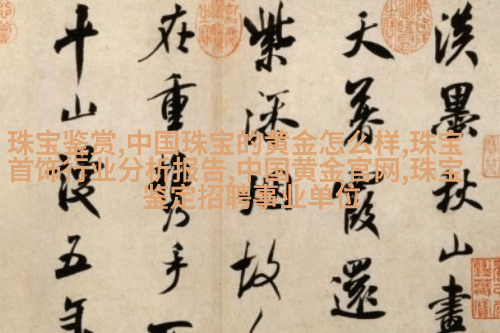 珠宝鉴赏,中国珠宝的黄金怎么样,珠宝
首饰行业分析报告,中国黄金官网,珠宝
鉴定招聘事业单位
淡墨秋山畫
天暮霞還
紫添烟故
在重攜手不
平山謾五年